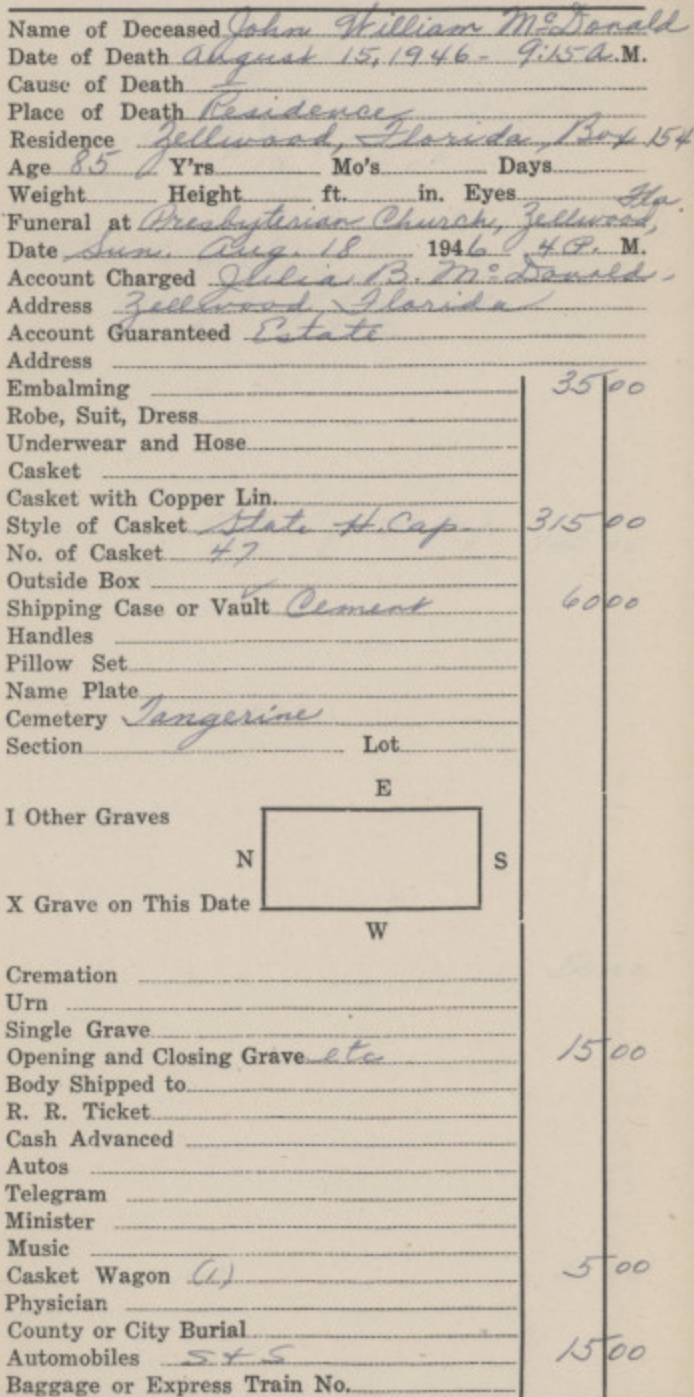 Name of Deceased John William McDonald
Date of Death August 15, 1946 - 9:15 A.M.
Cause of Death —
Place of Death Residence
Residence Zellwood, Florida, Box 154
Age 85 Y'rs Mo's Days
Weight Height ft. in. Eyes
Funeral at Presbyterian Church, Zellwood, Fla.
Date Sun. Aug. 18 1946 4 P. M.
Account Charged Julia B. McDonald.
Address Zellwood, Florida
Account Guaranteed Estate
Address
Embalming 35 00
Robe, Suit, Dress
Underwear and Hose
Casket
Casket with Copper Lin.
Style of Casket State H. Cap 315 00
No. of Casket 47
Outside Box
Shipping Case or Vault Cement 60 00
Handles
Pillow Set
Name Plate
Cemetery Tangerine
Section Lot
E
I Other Graves
N S
X Grave on This Date
W
Cremation
Urn
Single Grave
Opening and Closing Grave etc 15 00
Body Shipped to
R. R. Ticket
Cash Advanced
Autos
Telegram
Minister
Music
Casket Wagon (1) 5 00
Physician
County or City Burial
Automobiles S & S 15 00
Baggage or Express Train No.